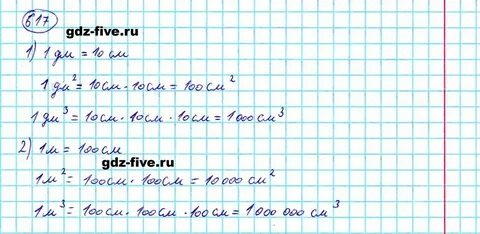 617
gdz-five.ru
1) 1 дм = 10 см
1 дм² = 10см · 10см = 100 см²
1 дм³ = 10см · 10см · 10см = 1 000 см³
2) 1м = 100см
gdz-five.ru
1м² = 100см · 100см = 10 000 см²
1м³ = 100см · 100см · 100 см = 1 000 000 см³